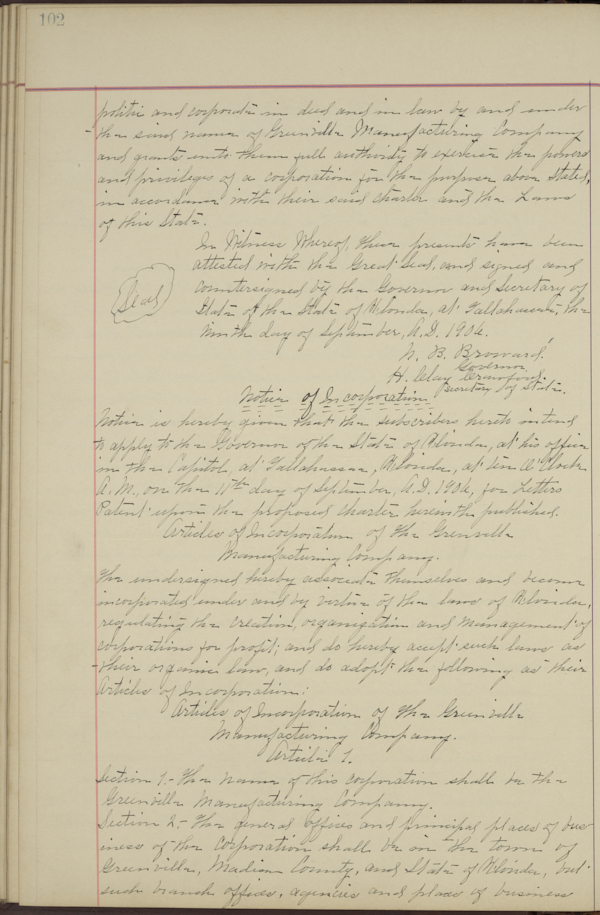 102
politic and corporate in deed and in law by and under
the said name of Greenville Manufacturing Company
and grants unto them full authority to exercise the powers
and privileges of a corporation for the purposes above stated,
in accordance with their said charter and the Laws
of this State.
In Witness Whereof, these presents have been
attested with the Great Seal, and signed and
countersigned by the Governor and Secretary of
State of the State of Florida, at Tallahassee, the
ninth day of September, A.D. 1906.
Seal
N. B. Broward,
Governor
H. Clay Crawford.
Secretary of State.
Notice of Incorporation
Notice is hereby given that the subscribers hereto intend
to apply to the Governor of the State of Florida, at his office
in the Capitol, at Tallahassee, Florida, at ten o'Clock
A.M., on the 11th day of September, A.D. 1906, for Letters
Patent upon the proposed charter herewith published.
Articles of Incorporation of the Grenville
Manufacturing Company.
The undersigned hereby associate themselves and become
incorporated under and by virtue of the laws of Florida,
regulating the creation, organization and management of
corporations for profit; and do hereby accept such laws as
their organic law, and do adopt the following as their
Articles of Incorporation:
Articles of Incorporation of the Greenville
Manufacturing Company.
Article 1.
Section 1.- The name of this corporation shall be the
Greenville Manufacturing Company.
Section 2.- The general offices and principal places of bus
iness of the corporation shall be in the town of
Greenville, Madison County, and State of Florida, but
such branch offices, agencies and places of business